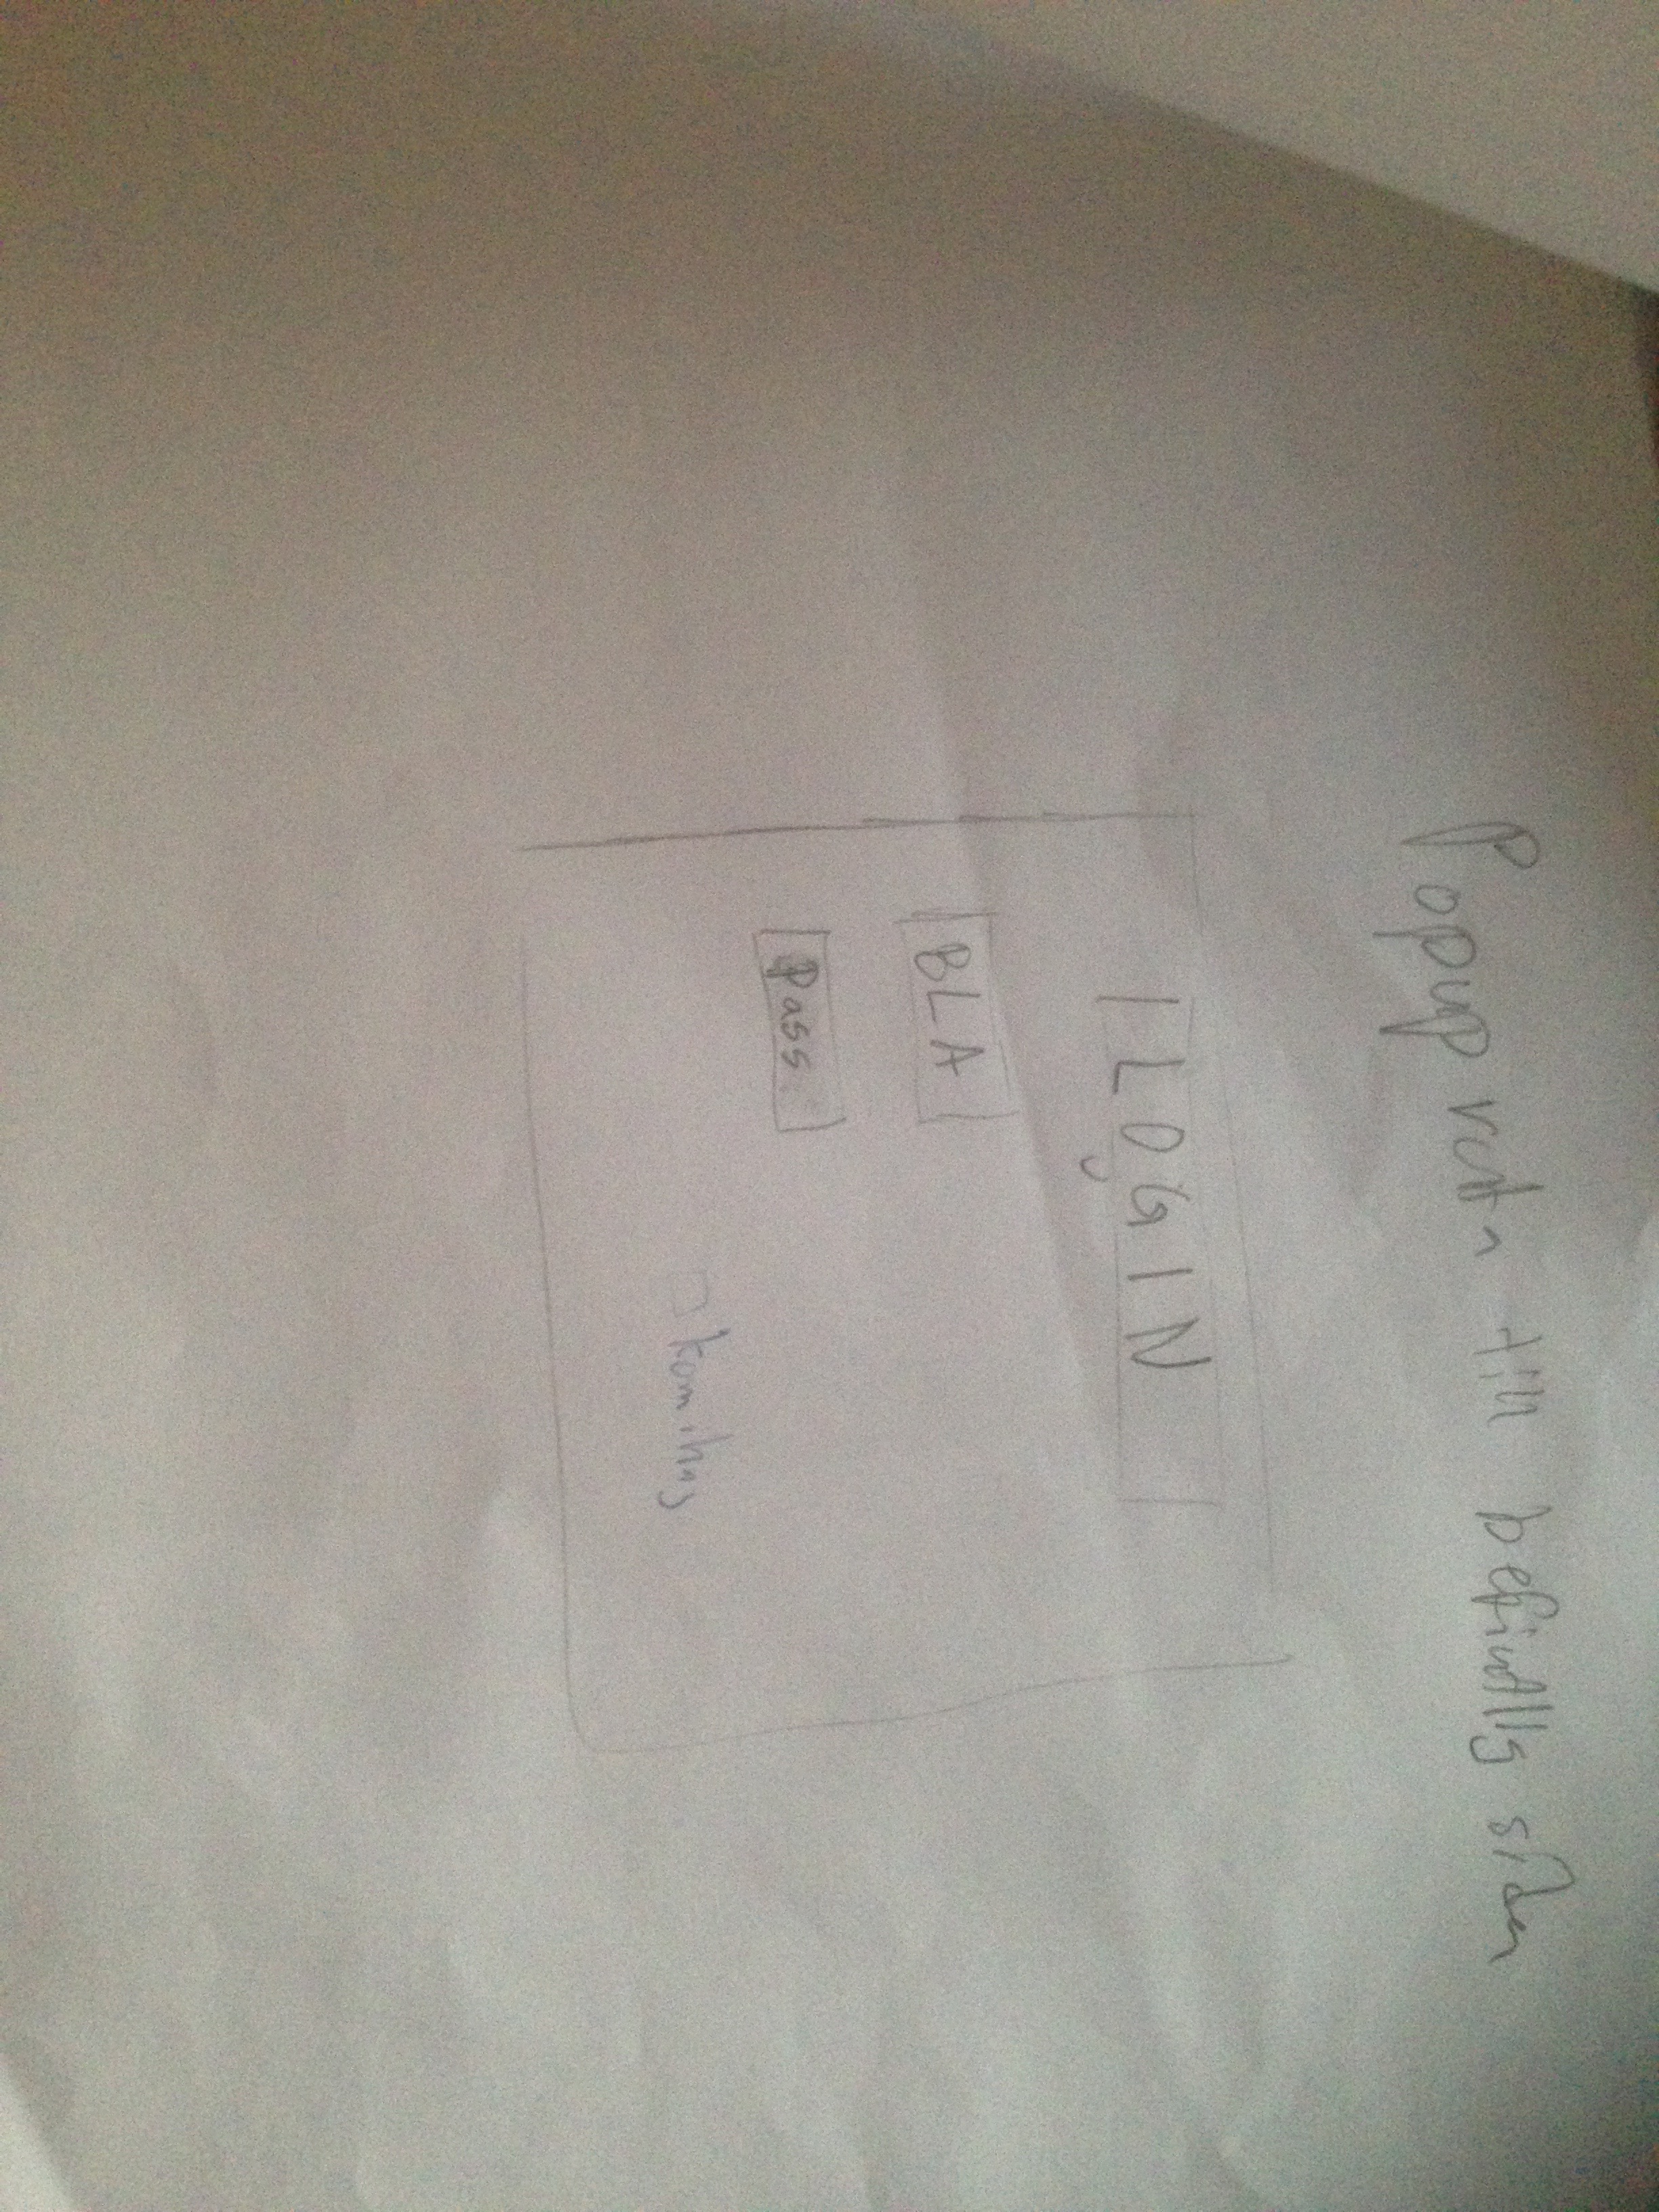 Popup rutn till befintlig sidan
LOGIN
BLA
Pass
kom ihåg